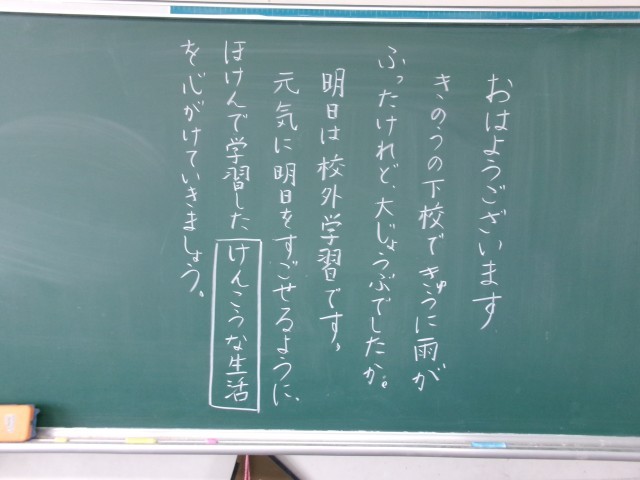 おはようございます
きのうの下校できゅうに雨が
ふったけれど、大じょうぶでしたか。
明日は校外学習です。
元気に明日をすごせるように、
ほけんで学習したけんこうな生活
を心がけていきましょう。